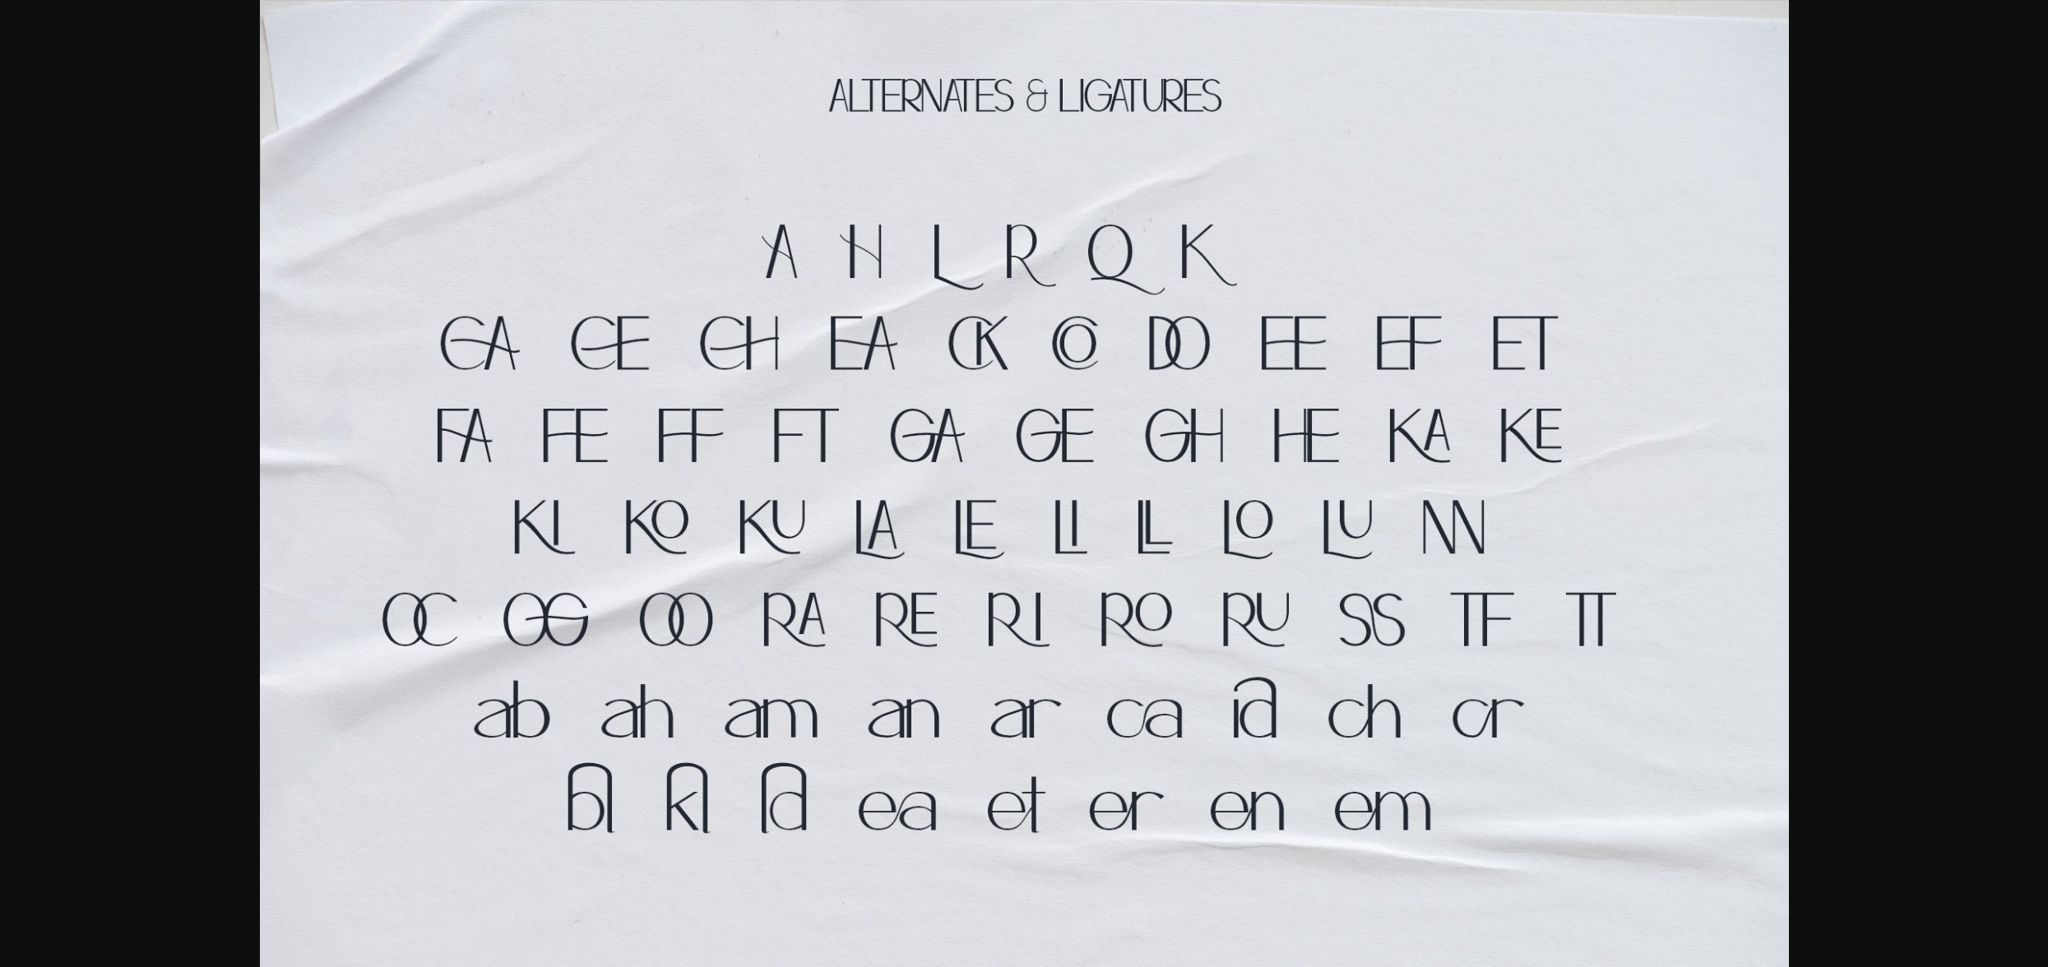 ALTERNATES & LIGATURES
A H L R Q K
CA CE CH EA CK CO DO EE EF ET
FA FE FF FT GA GE GH HE KA KE
KI KO KU LA LE LI LL LO LU NN
OC OG OO RA RE RI RO RU SS TF TT
ab ah am an ar ca id ch cr
bl kl ld ea et er en em